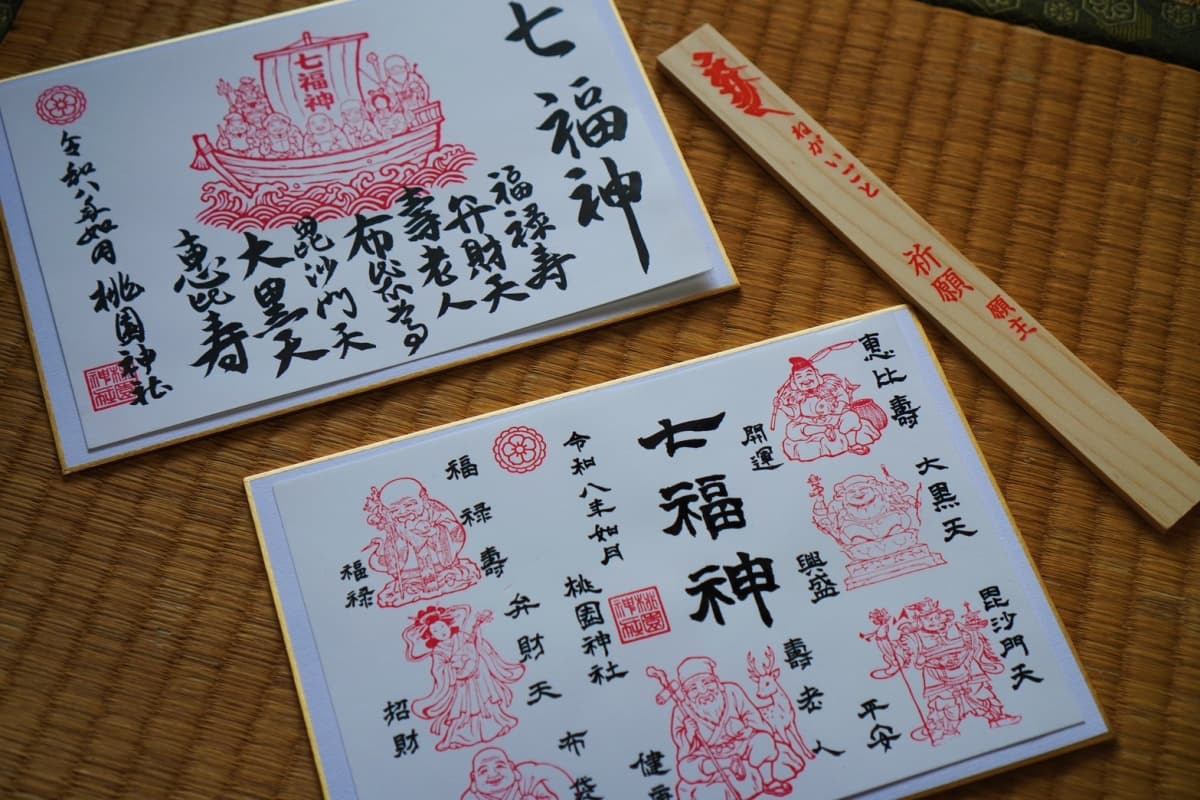 七福神
七福神
福禄寿
弁財天
壽老人
布袋尊
毘沙門天
大黒天
恵比寿
令和八年如月
桃園神社
桃園神社
ねがいごと
祈願
願主
恵比壽
開運
大黒天
興盛
毘沙門天
平安
七福神
壽老人
令和八年如月
桃園神社
桃園神社
福禄壽
福禄
弁財天
招財
布袋